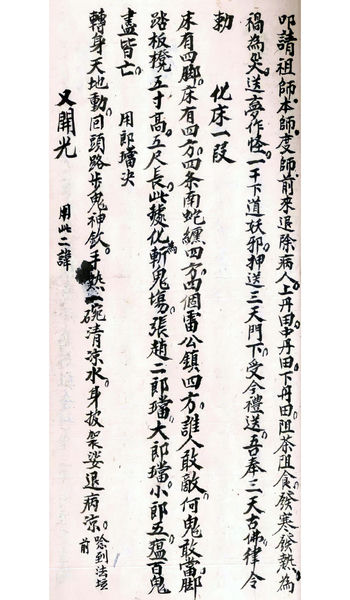 叩請祖師本師度師前來退除病人上丹田中丹田下丹田阻茶阻食發寒發熱為
禍為災送夢作怪一干下道妖邪押送三天門下受令禮送吾奉三天古佛律令
勅 化床一段
床有四脚床有四方四条南蛇纏四方四個雷公鎮四方誰人敢敵何鬼敢當脚
踏板櫈五寸高五尺長此櫈化為斬鬼場張趙二郎璫大郎璫小郎五瘟百鬼
盡皆亡 用郎璫决
轉身天地動回頭路步鬼神欽手熱一碗清凉水身披袈娑退病凉唸到法坛前
又開光 用此二諱